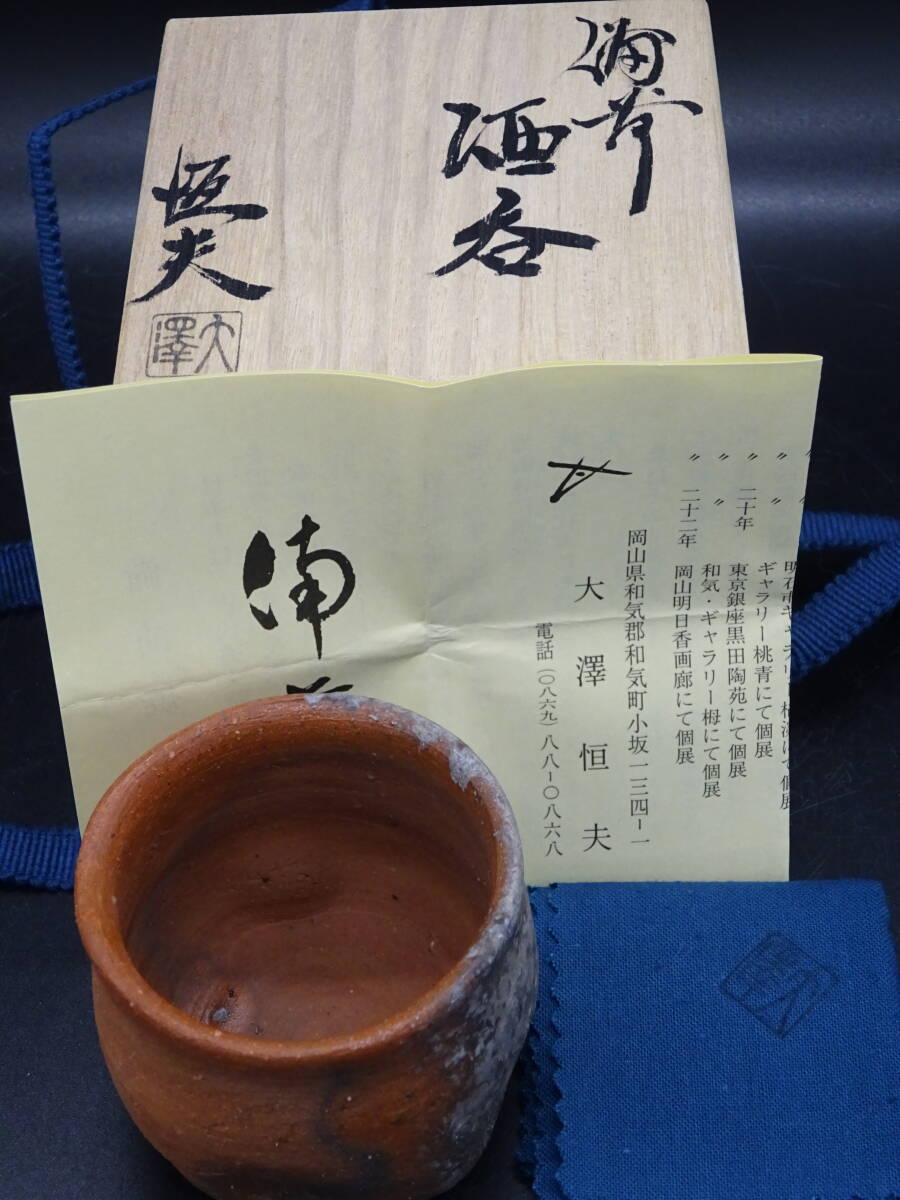 備前
酒呑
恒夫
大澤
〃
〃
〃 〃
〃 二十年
ギャラリー桃青にて個展
東京銀座黒田陶苑にて個展
〃 〃 和気・ギャラリー栂にて個展
〃 二十二年 岡山明日香画廊にて個展
岡山県和気郡和気町小坂一三四ー一
大澤恒夫
電話(〇八六九)八八ー〇八六八
備前
大澤